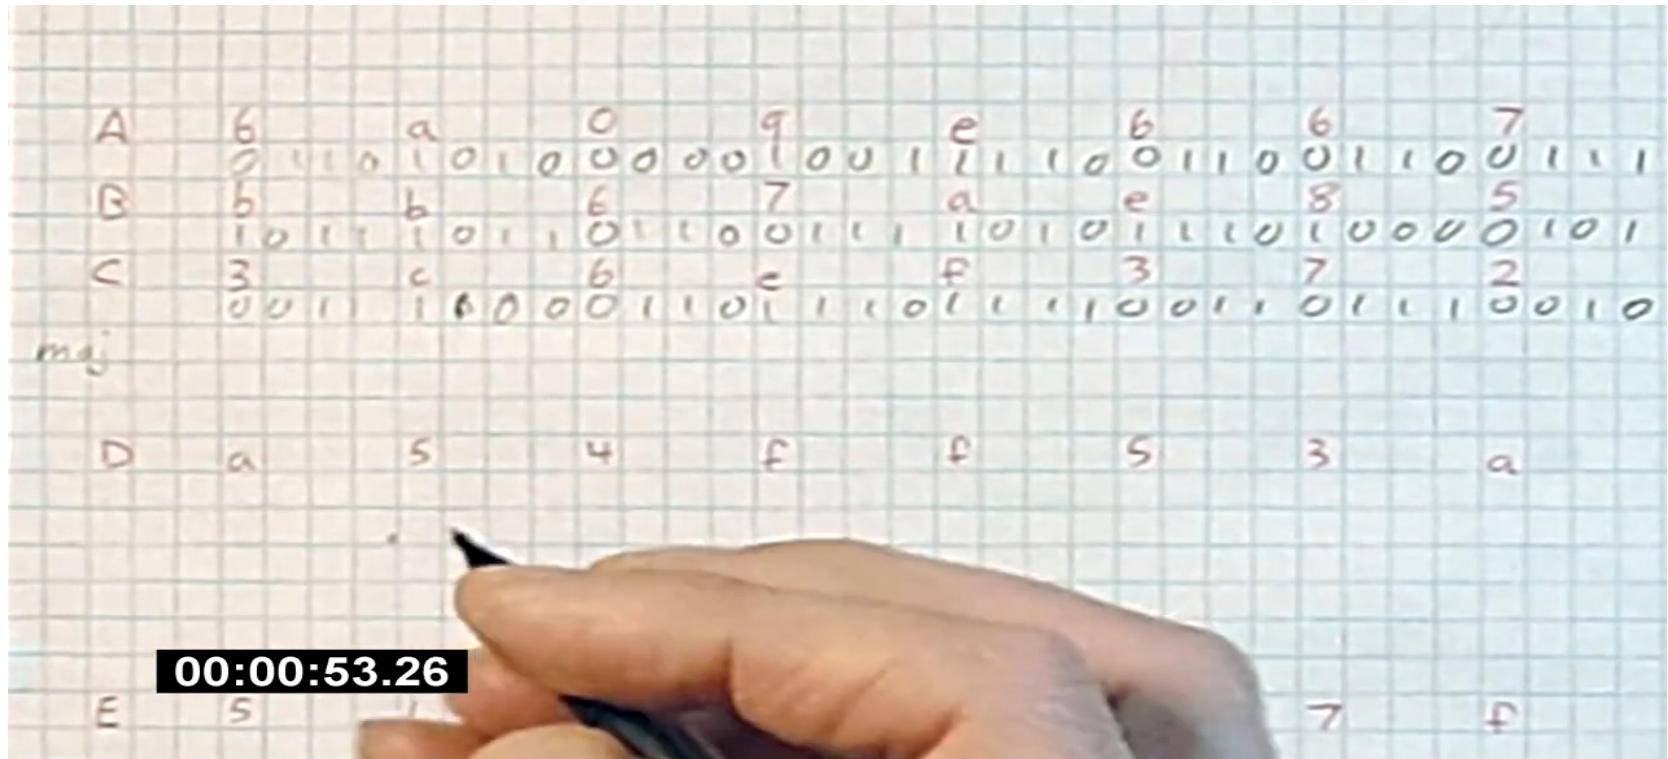 A 6 a 0 9 e 6 6 7
0 1 1 0 1 0 1 0 0 0 0 0 1 0 0 1 1 1 1 0 0 1 1 0 0 1 1 0 0 1 1 1
B b b 6 7 a e 8 5
1 0 1 1 1 0 1 1 0 1 1 0 0 1 1 1 1 0 1 0 1 1 1 0 1 0 0 0 0 1 0 1
C 3 c 6 e f 3 7 2
0 0 1 1 1 1 0 0 0 1 1 0 1 1 1 0 1 1 1 1 0 0 1 1 0 1 1 1 0 0 1 0
maj
D a 5 4 f f 5 3 a
00:00:53.26
E 5 7 f